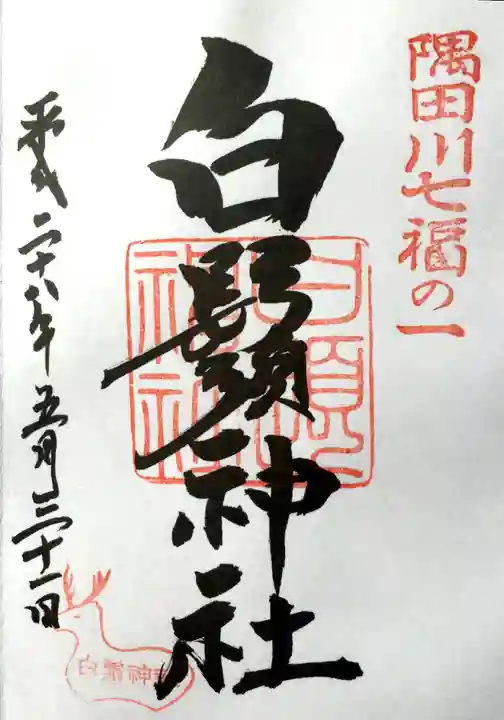 隅田川七福の一
白鬚神社
平成二十八年五月三十一日
白鬚神社
白鬚神社